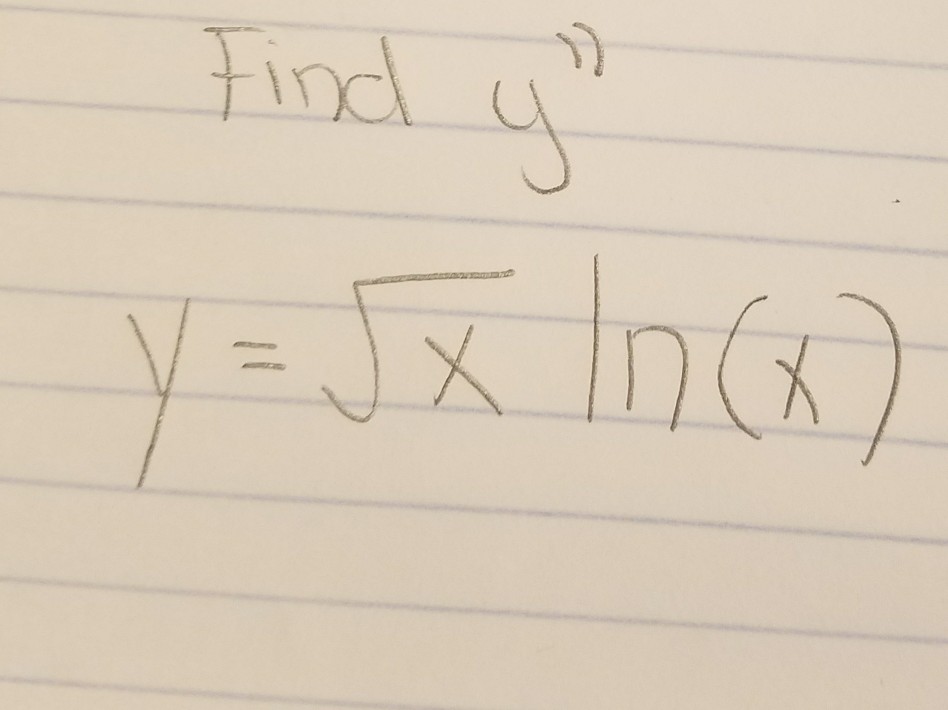 Find y"
y = √x ln(x)